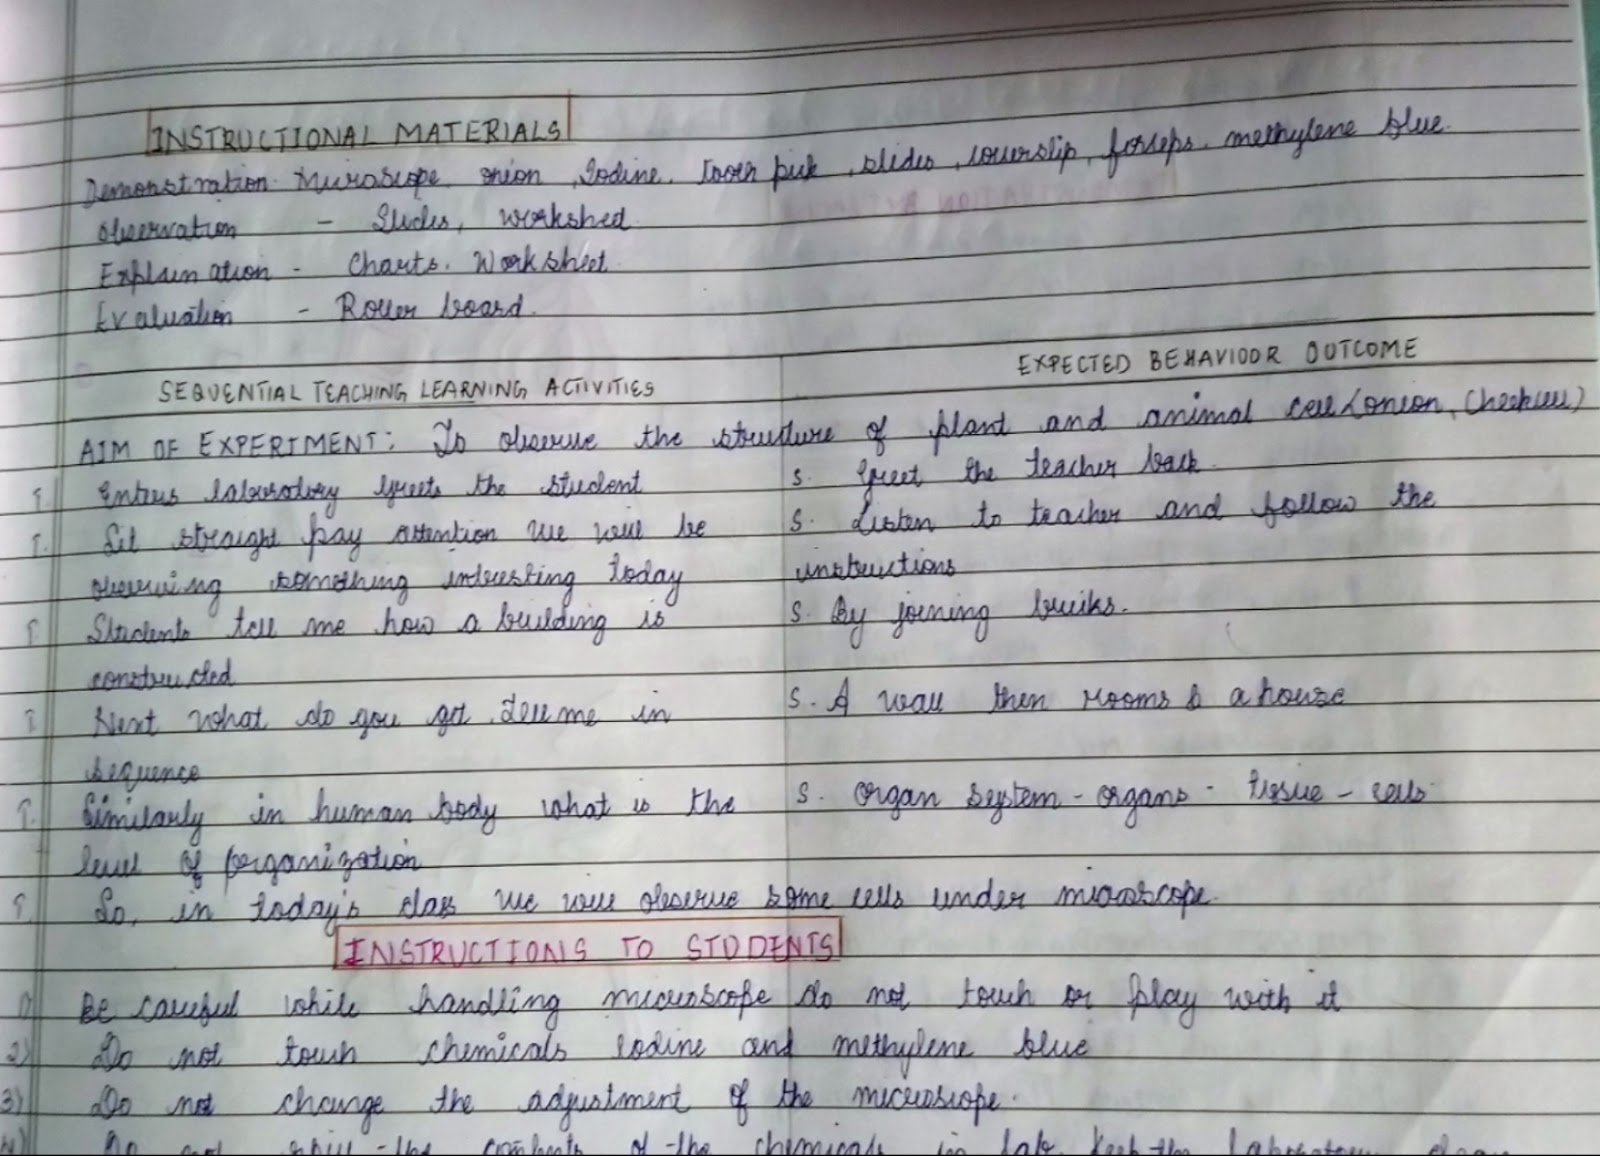 INSTRUCTIONAL MATERIALS
Demonstration - Microscope, onion, Iodine, tooth pick, slides, coverslip, forseps, methylene blue.
Observation - Slides, workshed.
Explaination - Charts. Worksheet.
Evaluation - Roller board.
SEQUENTIAL TEACHING LEARNING ACTIVITIES EXPECTED BEHAVIOOR OUTCOME
AIM OF EXPERIMENT: To observe the structure of plant and animal cell (onion, Cheekcell)
T. Enters laboratory greets the student S. Greet the teacher back.
T. Sit straight pay attention we will be S. Listen to teacher and follow the
observing something interesting today instructions
T. Students tell me how a building is S. By joining bricks.
constructed
T. Next what do you get. Tell me in S. A wall then rooms & a house
sequence
T. Similarly in human body what is the S. Organ system - organs - tissue - cells
level of organization
T. So, in today's class we will observe some cells under microscope.
INSTRUCTIONS TO STUDENTS
1) Be careful while handling microscope do not touch or play with it
2) Do not touch chemicals Iodine and methylene blue
3) Do not change the adjustment of the microscope.
4) Do not spill the contents of the chemicals in lab. Keep the laboratory clean